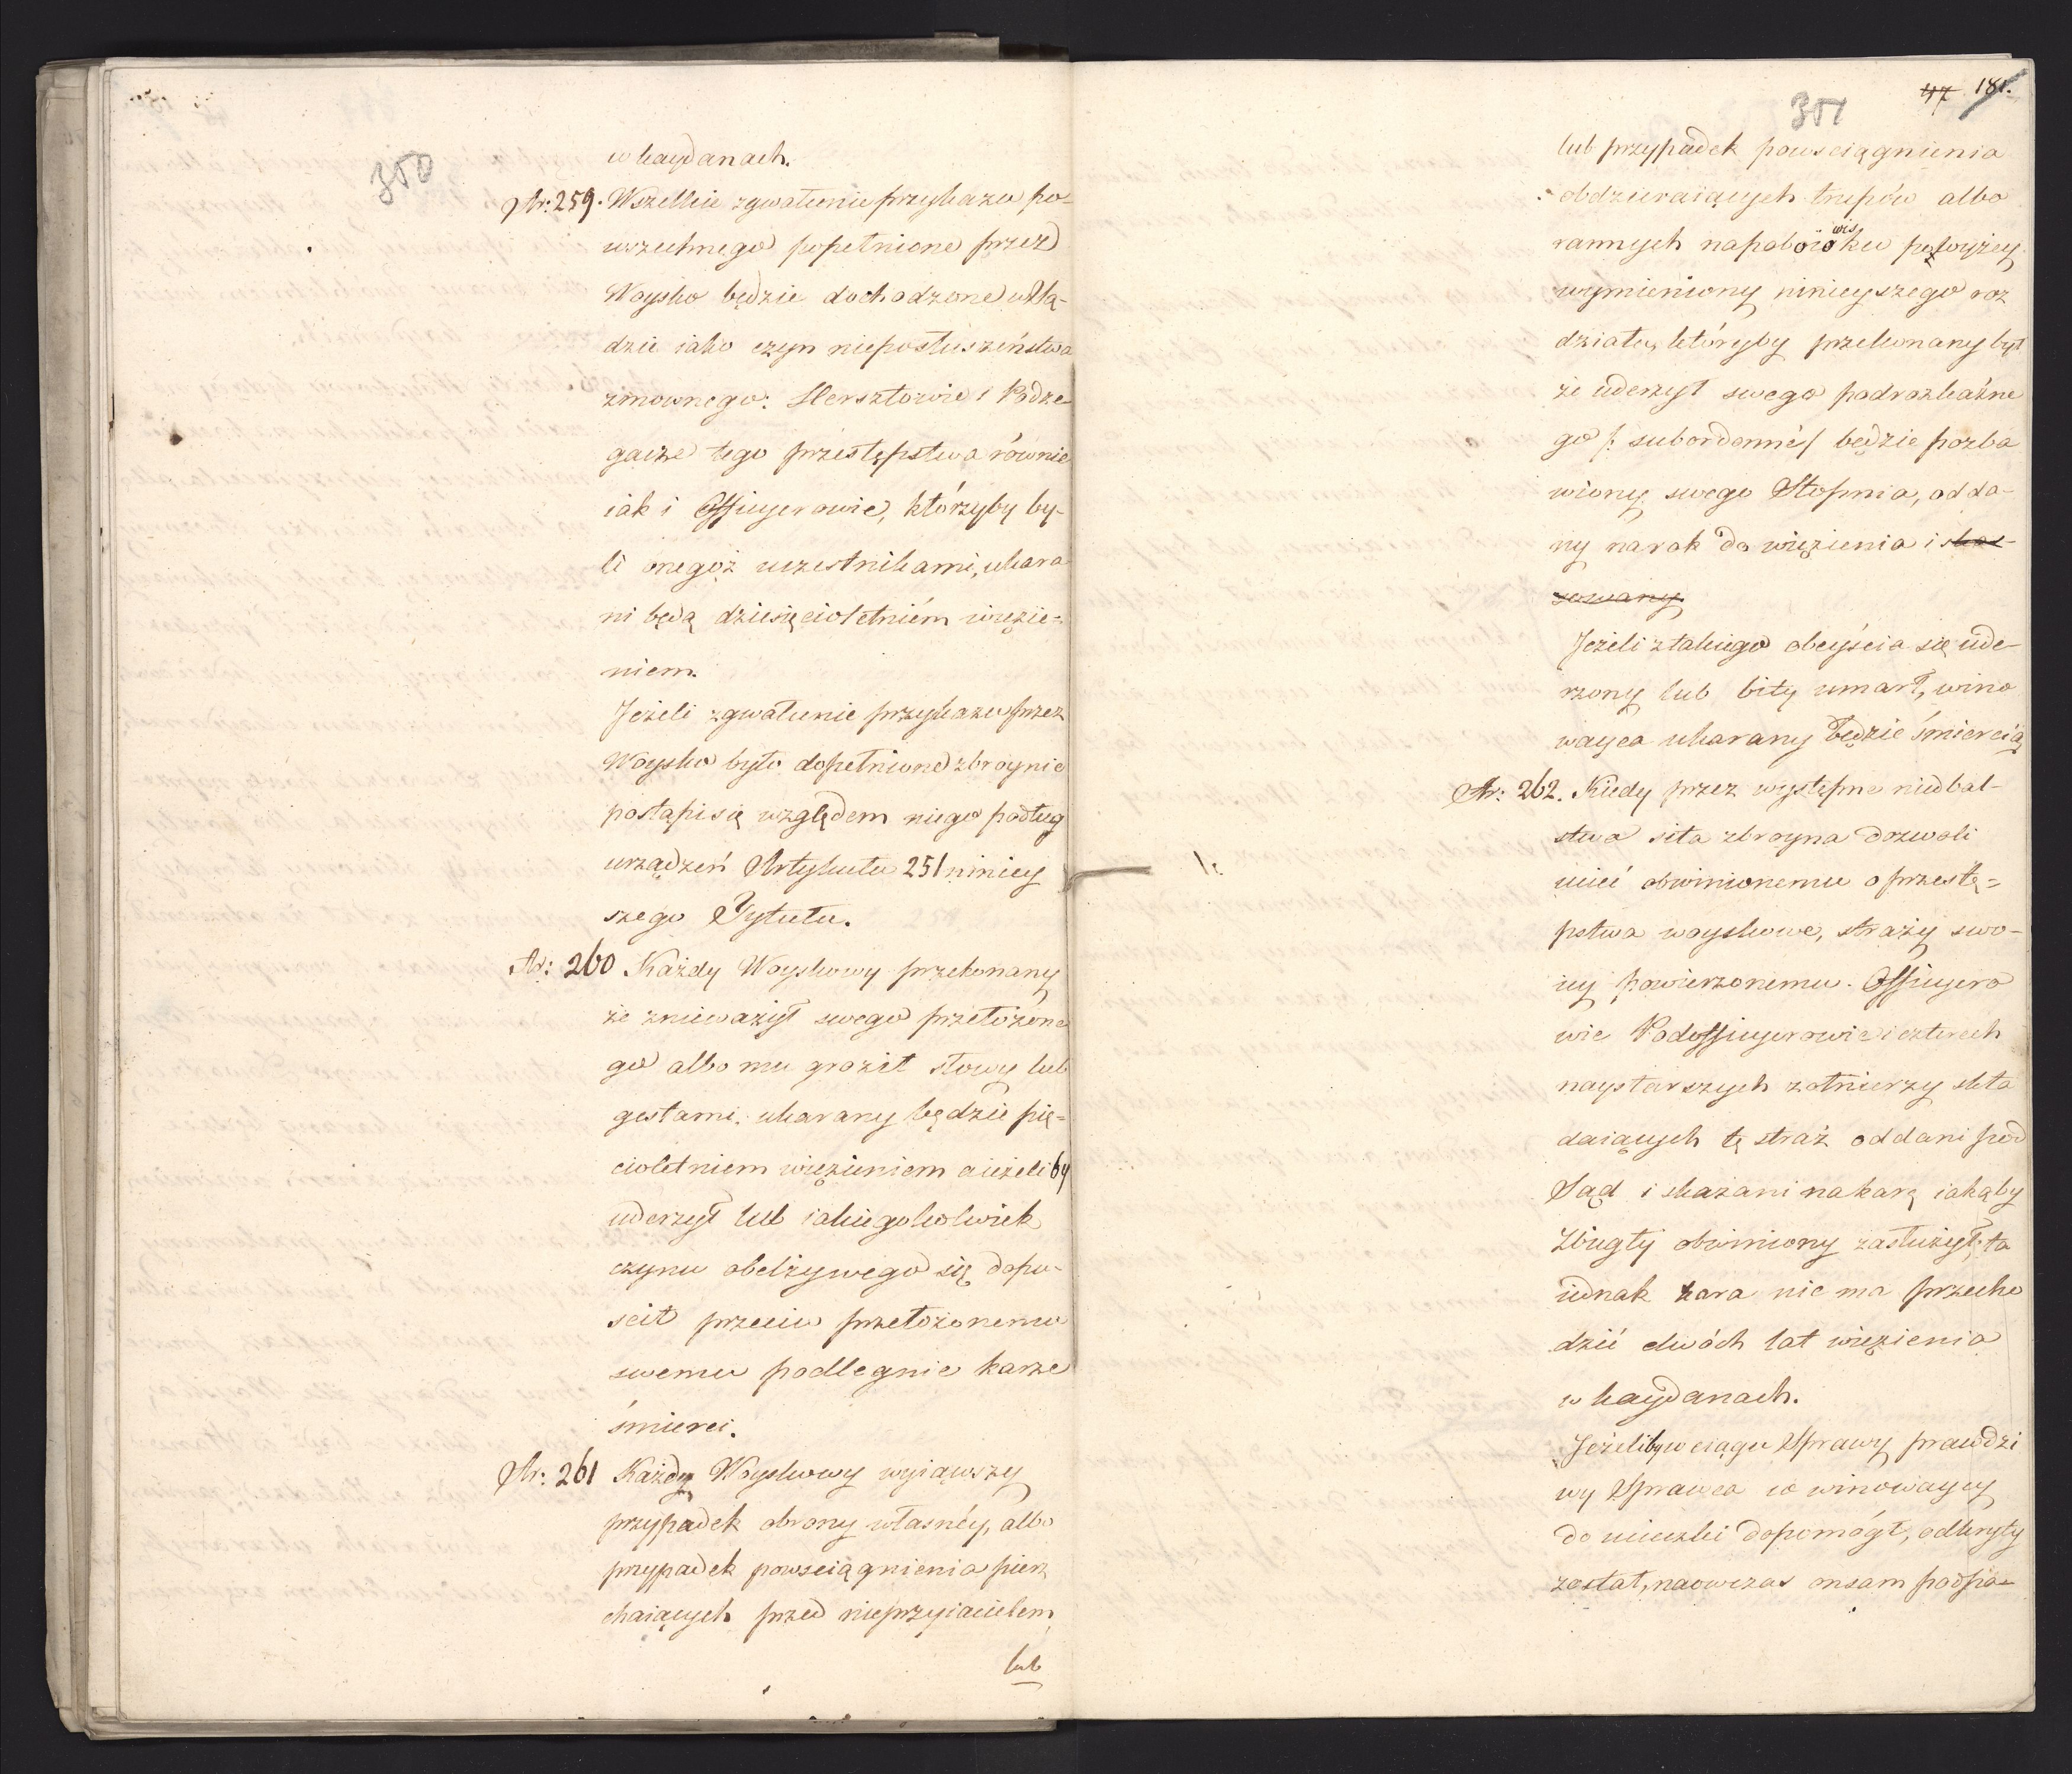 350
w kaydanach.
Ar: 259. Wszelkie zgwałcenie przykazu po-
wszechnego popełnione przez
Woysko będzie dochodzone w Są-
dzie iako czyn nieposłuszeństwa
zmownego: Hersztowie i Podże-
gacze tego przestępstwa równie
iak i Officyerowie, którzyby by-
li onegoż uczestnikami, ukara
ni będą dziesięcioletniém więzie=
niem.
Jeżeli zgwałcenie przykazu przez
Woysko było dopełnione zbroynie
postąpi się względem niego podług
urządzeń Artykułu 251 niniey
szego Tytułu.
Ar: 260 Każdy Woyskowy przekonany
że znieważył swego przełożone
go albo mu groził słowy lub
gestami, ukarany będzie pię=
cioletniem więzieniem a ieżeliby
uderzył lub iakiegokolwiek
czynu obelżywego się dopu-
scił przeciw przełożonemu
swemu podlegnie karze
śmierci.
Ar: 261 Każdy Woyskowy wyiąwszy
przypadek obrony własnéy, albo
przypadek powsciągnienia pierz
chaiących przed nieprzyiacielem,
lub
47 181.
351
lub przypadek powsciągnienia
obdzieraiących trupów albo
rannych na poboiowisku powyżey
wymieniony ninieyszego roz
działu, któryby przekonany był
że uderzył swego podrozkaźne
go /: subordonné/ będzie pozba
wiony swego Stopnia, odda-
ny na rok do więzienia i skas-
sowany
Jeżeli z takiego obeyścia się ude-
rzony lub bity umarł, wino
wayca ukarany będzie śmiercią
Ar: 262. Kiedy przez występne niedbal-
stwo siła zbroyna dozwoli
uciec obwinionemu o przestę=
pstwa woyskowe, straży swo-
iey powierzonemu. Officyero
wie Podofficyerowie i czterech
naystarszych żołnierzy skła
daiących tę straż oddani pod
Sąd i skazani na karę iakąby
Zbiegły obwiniony zasłużył; ta
iednak kara nie ma przecho
dzić dwóch lat więzienia
w kaydanach.
Jeżeliby w ciągu Sprawy prawdzi
wy Sprawca co winowaycy
do ucieczki dopomógł, odkryty
został, naowczas on sam podpa-